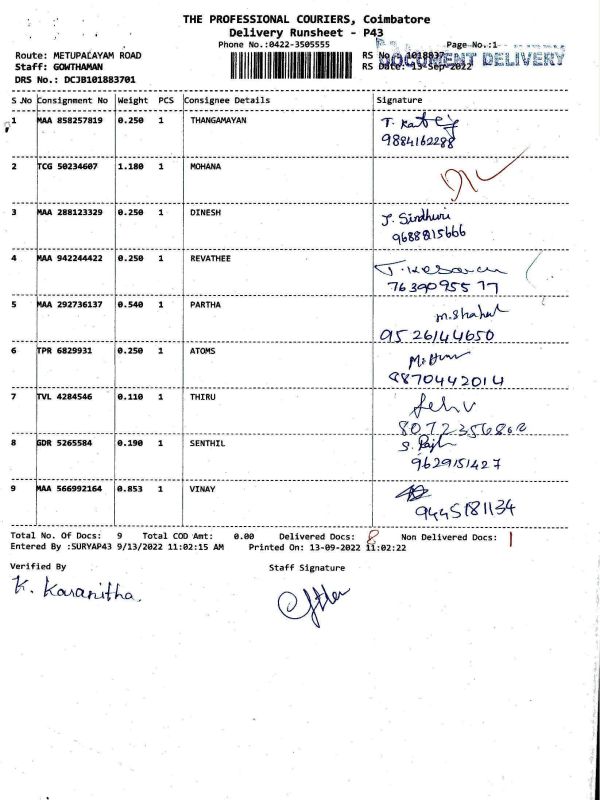 THE PROFESSIONAL COURIERS, Coimbatore
Delivery Runsheet - P43
Phone No.:0422-3505555
Page No.:1
DOCUMENT DELIVERY
Route: METUPALAYAM ROAD
RS No : 1018837
Staff: GOWTHAMAN
RS Date: 13-Sep-2022
DRS No.: DCJB101883701
S.No Consignment No Weight PCS Consignee Details Signature
1 MAA 858257819 0.250 1 THANGAMAYAN
9884162288
2 TCG 50234607 1.180 1 MOHANA
3 MAA 288123329 0.250 1 DINESH J. Sindhuri
9688815666
4 MAA 942244422 0.250 1 REVATHEE
7639095577
5 MAA 292736137 0.540 1 PARTHA m.Shahul
9526144650
6 TPR 6829931 0.250 1 ATOMS
9870442014
7 TVL 4284546 0.110 1 THIRU
8 GDR 5265584 0.190 1 SENTHIL
9629151427
9 MAA 566992164 0.853 1 VINAY
9445181134
Total No. Of Docs: 9 Total COD Amt: 0.00 Delivered Docs: 8 Non Delivered Docs: 1
Entered By :SURYAP43 9/13/2022 11:02:15 AM Printed On: 13-09-2022 11:02:22
Verified By Staff Signature
K. Karanitha.